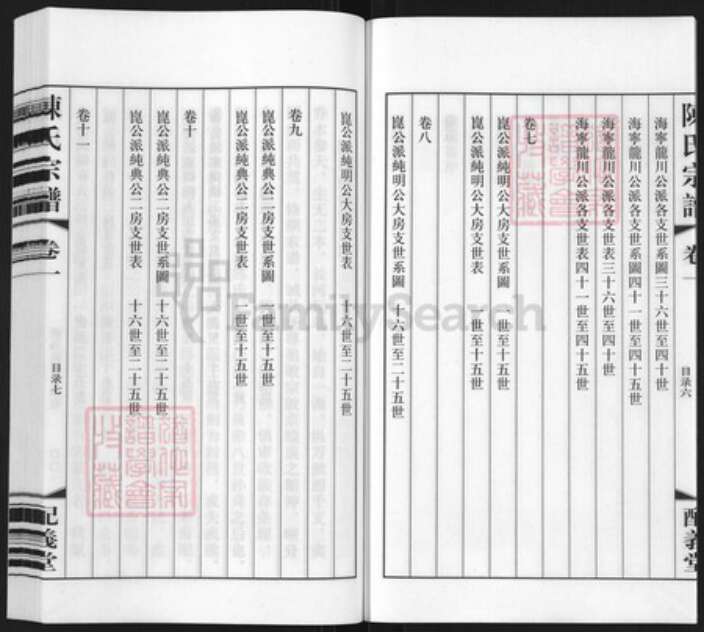 陳氏宗譜 卷一 目录六
海寧龍川公派各支世系圖三十六世至四十世
海寧龍川公派各支世系圖四十一世至四十五世
海寧龍川公派各支世表三十六世至四十世
海寧龍川公派各支世表四十一世至四十五世
卷七
崑公派純明公大房支世系圖 一世至十五世
崑公派純明公大房支世表 一世至十五世
卷八
崑公派純明公大房支世系圖 十六世至二十五世
崑公派純明公大房支世表 十六世至二十五世
卷九
崑公派純典公二房支世系圖 一世至十五世
崑公派純典公二房支世表 一世至十五世
卷十
崑公派純典公二房支世系圖 十六世至二十五世
崑公派純典公二房支世表 十六世至二十五世
卷十一
陳氏宗譜 卷一 目录七
FamilySearch